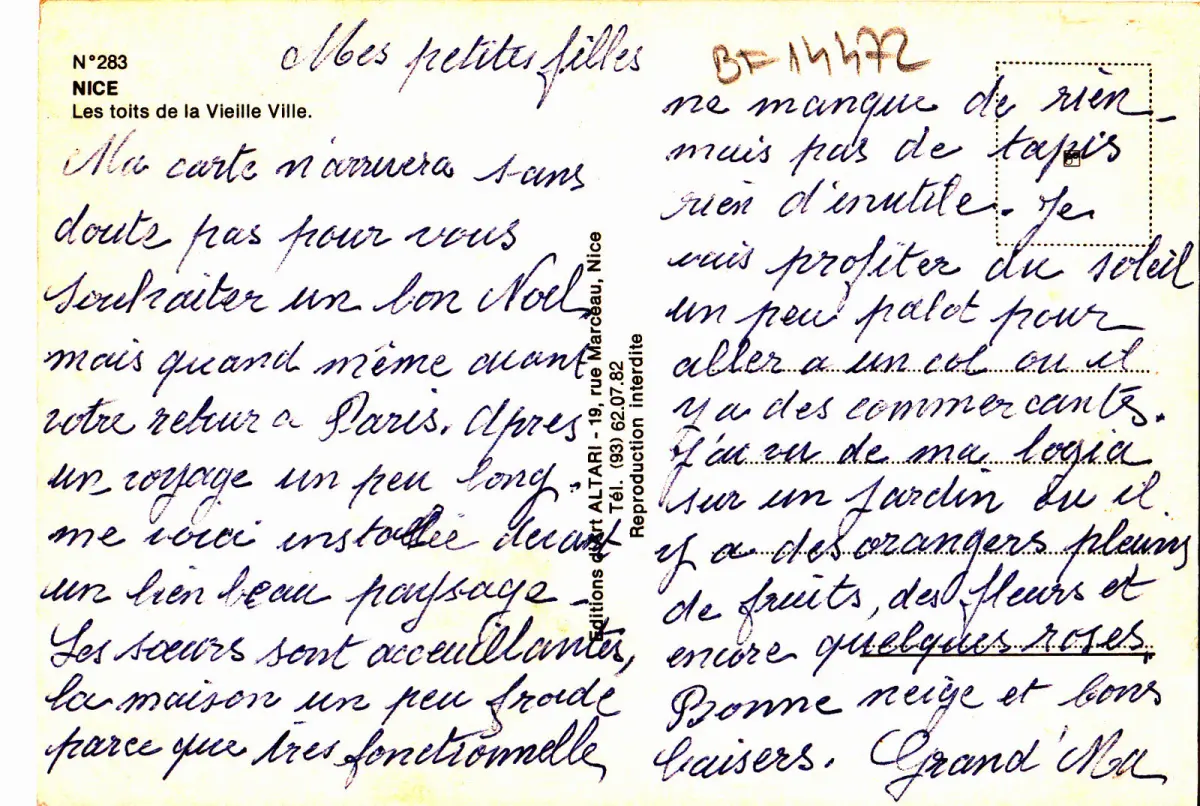 N°283
NICE
Les toits de la Vieille Ville.
Mes petites filles
Ma carte n'arrivera sans
doute pas pour vous
souhaiter un bon Noël
mais quand même avant
votre retour a Paris. Après
un voyage un peu long.
me voici installée devant
un bien beau paysage -
Les sœurs sont acceuillantes,
la maison un peu froide
parce que très fonctionnelle
Editions d'art ALTARI - 19, rue Marceau, Nice
Tél. (93) 62.07.82
Reproduction interdite
BF-14472
ne manque de rien -
mais pas de tapis
rien d'inutile. Je
vais profiter du soleil
un peu palot pour
aller a un col ou il
y a des commercants.
J'ai vu de ma logia
sur un jardin ou il
y a des orangers pleins
de fruits, des fleurs et
encore quelques roses.
Bonne neige et bons
baisers. Grand'Ma